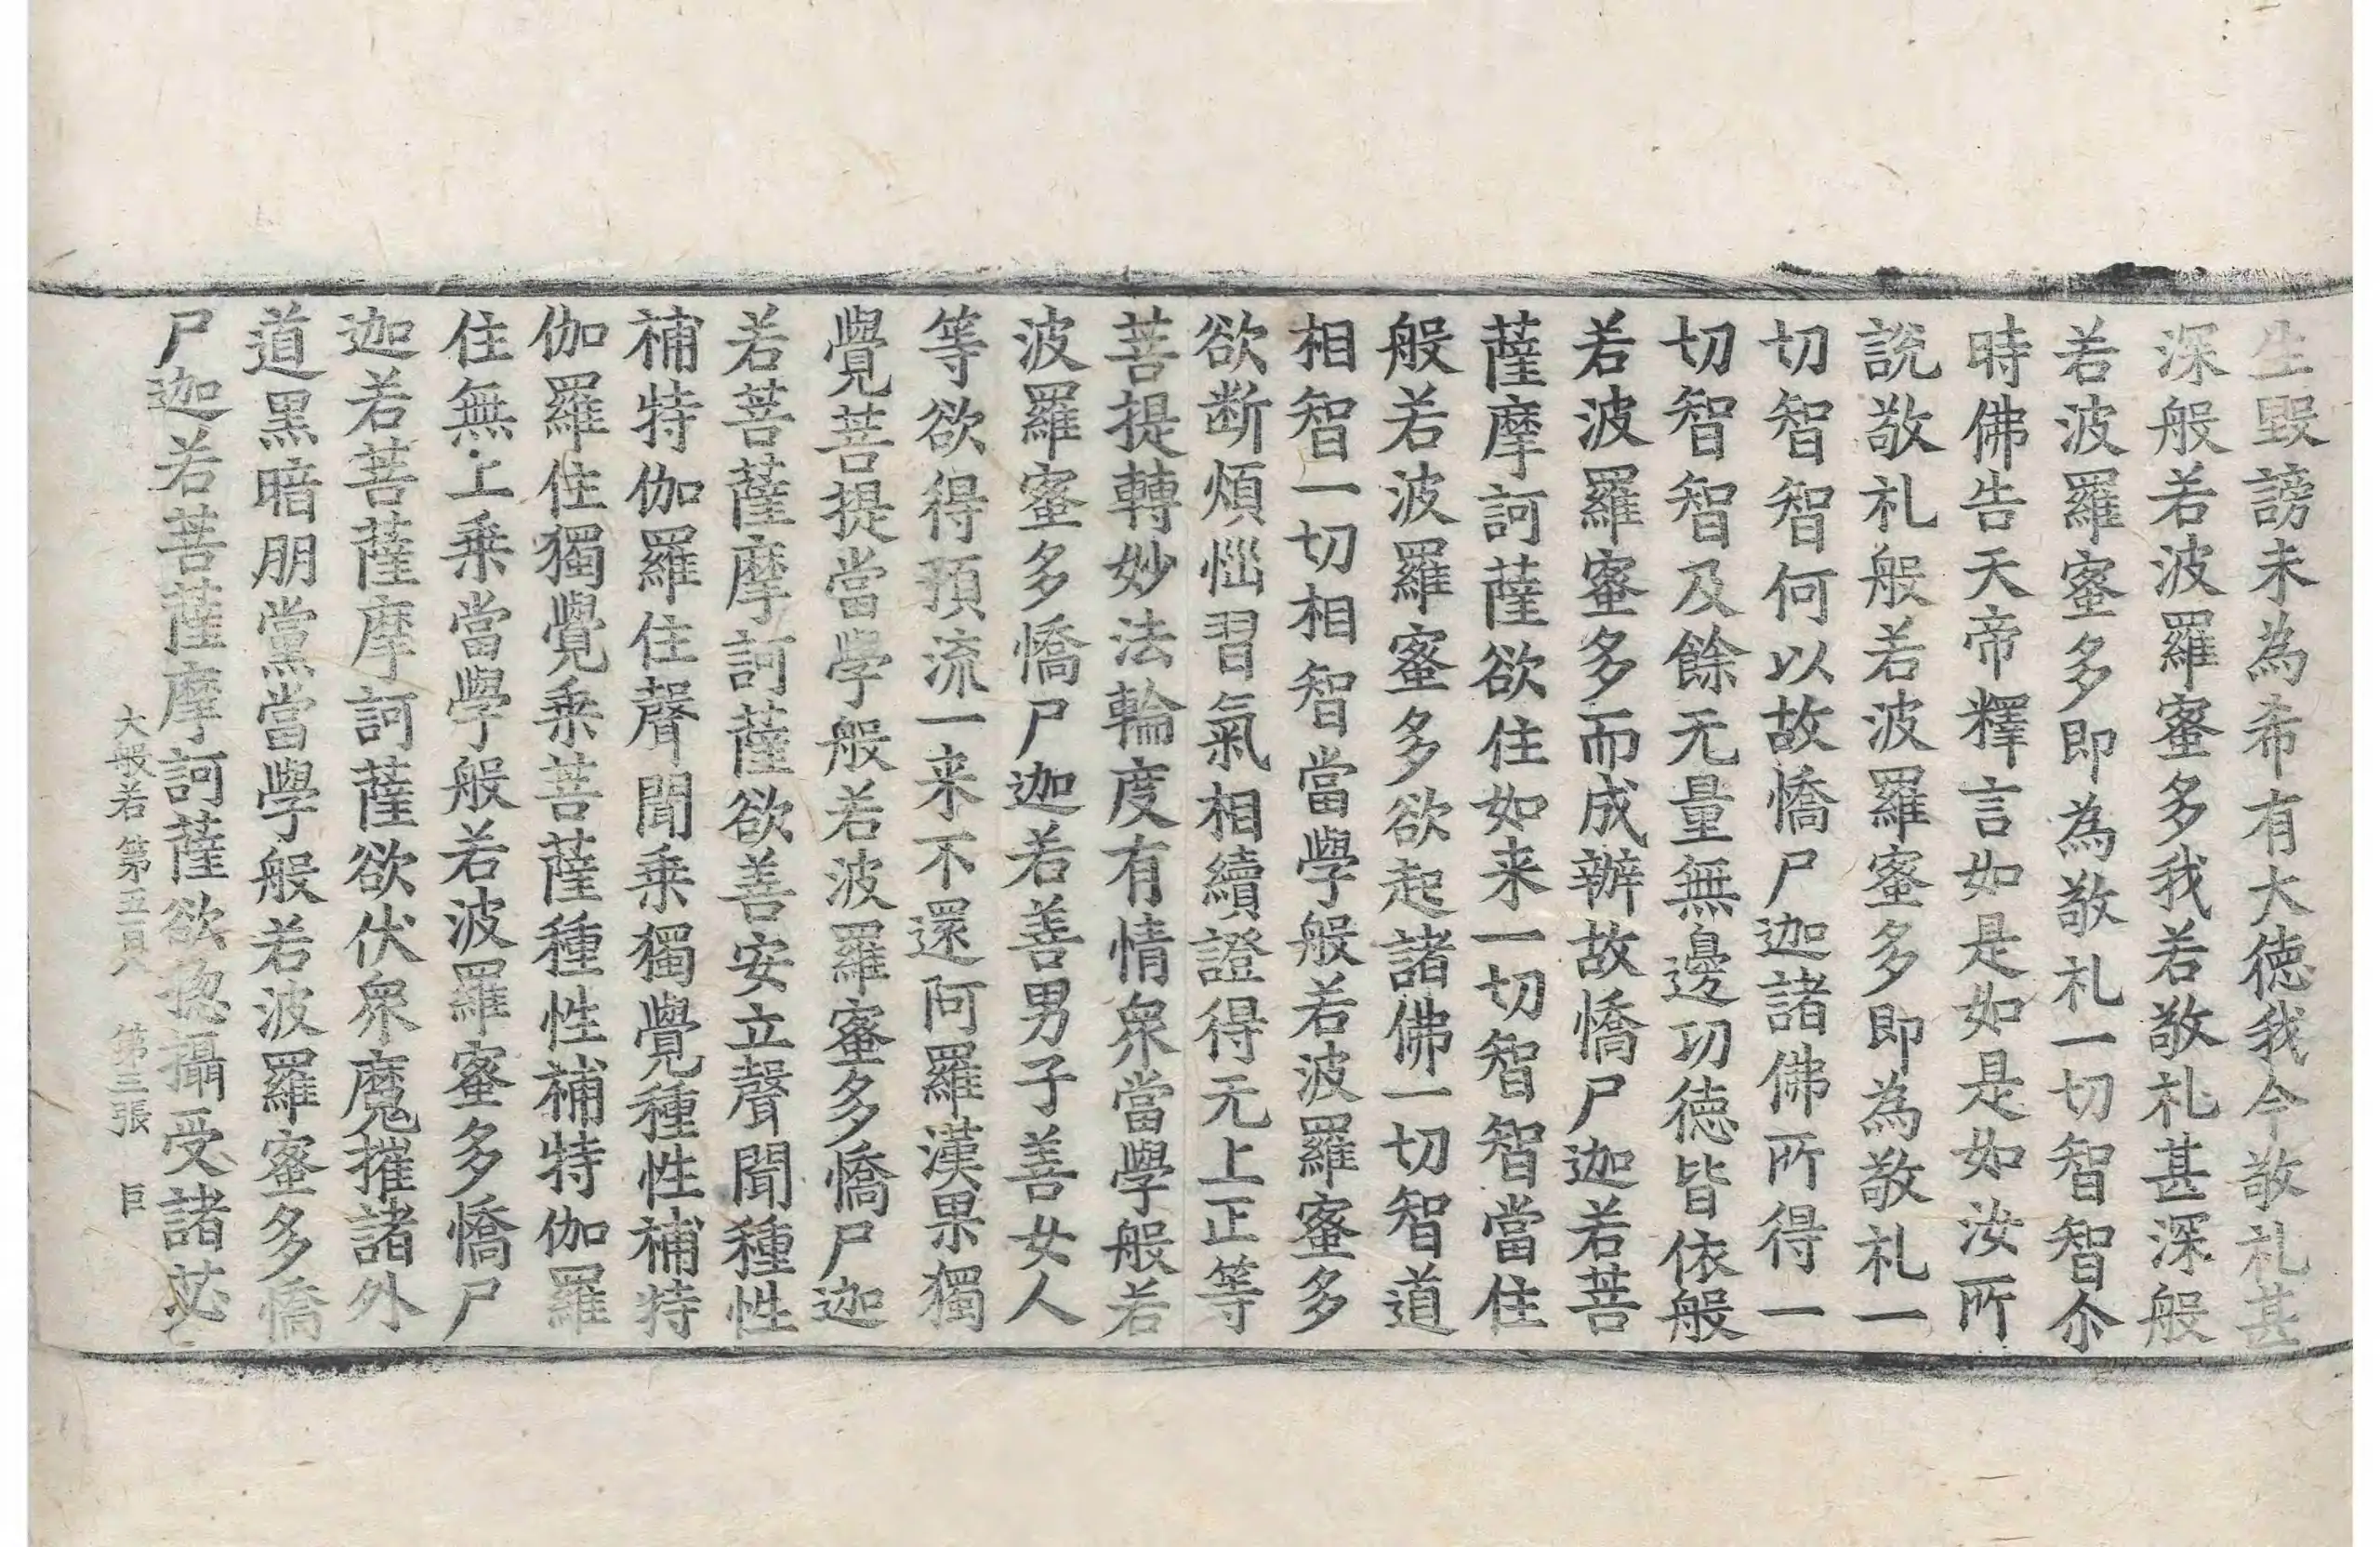 生毀謗未為希有大德我今敬礼甚
深般若波羅蜜多我若敬礼甚深般
若波羅蜜多即為敬礼一切智智尒
時佛告天帝釋言如是如是如汝所
說敬礼般若波羅蜜多即為敬礼一
切智智何以故憍尸迦諸佛所得一
切智智及餘无量無邊功德皆依般
若波羅蜜多而成辦故憍尸迦若菩
薩摩訶薩欲住如来一切智智當住
般若波羅蜜多欲起諸佛一切智道
相智一切相智當學般若波羅蜜多
欲断煩惱習氣相續證得无上正等
菩提轉妙法輪度有情衆當學般若
波羅蜜多憍尸迦若善男子善女人
等欲得預流一来不還阿羅漢果獨
覺菩提當學般若波羅蜜多憍尸迦
若菩薩摩訶薩欲善安立聲聞種性
補特伽羅住聲聞乘獨覺種性補特
伽羅住獨覺乘菩薩種性補特伽羅
住無上乘當學般若波羅蜜多憍尸
迦若菩薩摩訶薩欲伏衆魔摧諸外
道黑暗朋黨當學般若波羅蜜多憍
尸迦若菩薩摩訶薩欲揔攝受諸苾
大般若第五百 第三張 巨